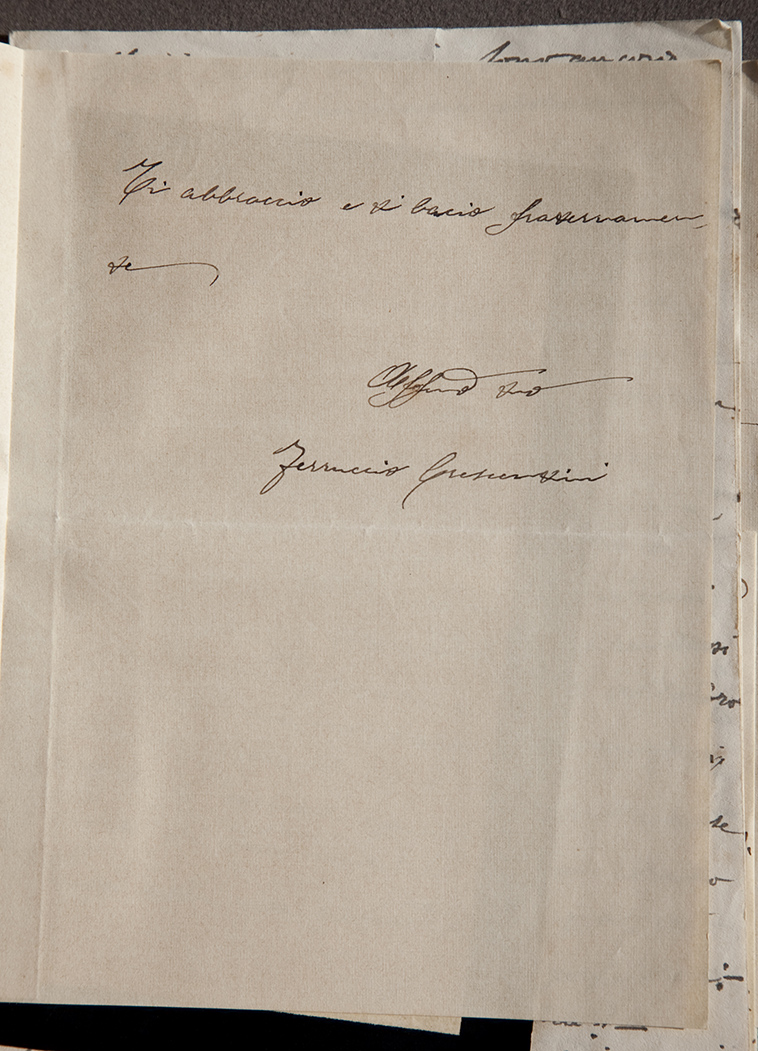 Ti abbraccio e ti bacio fraternamen-
te
Aff.mo tuo
Ferruccio Crescentini